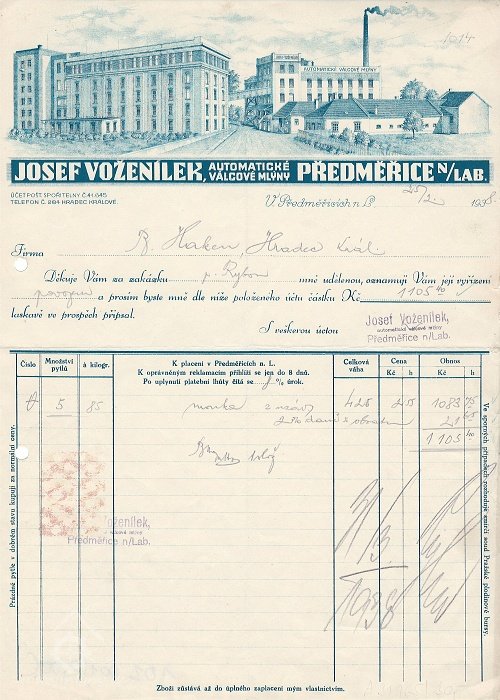 1014
JOSEF VOŽENÍLEK
AUTOMATICKÉ VÁLCOVÉ MLÝNY
JOSEF VOŽENÍLEK, AUTOMATICKÉ VÁLCOVÉ MLÝNY PŘEDMĚŘICE N/LAB.
ÚČET POŠT. SPOŘITELNY Č. 41.645
TELEFON Č. 284 HRADEC KRÁLOVÉ
V Předměřicích n/L. 25/2. 1938.
Firma B. Haken, Hradec Král.
Děkuje Vám za zakázku p. Rybou mně udělenou, oznamuji Vám její vyřízení
a prosím byste mně dle níže položeného účtu částku Kč 1105 40
laskavě ve prospěch připsal.
S veškerou úctou
Josef Voženílek,
automatické válcové mlýny
Předměřice n/Lab.
Číslo Množství pytlů à kilogr. K placení v Předměřicích n. L. Celková váha Cena Kč h Obnos Kč h
K oprávněným reklamacím přihlíží se jen do 8 dnů.
Po uplynutí platební lhůty čítá se % úrok.
0 5 85 mouka 425 255 1083 75
2% daně z obratu 21 65
1105 40
Voženílek,
válcové mlýny
Předměřice n/Lab.
31/3 1938
Prázdné pytle v dobrém stavu kupuji za normální ceny.
Ve sporných případech rozhoduje smírčí soud Pražské plodinové bursy.
Zboží zůstává až do úplného zaplacení mým vlastnictvím.